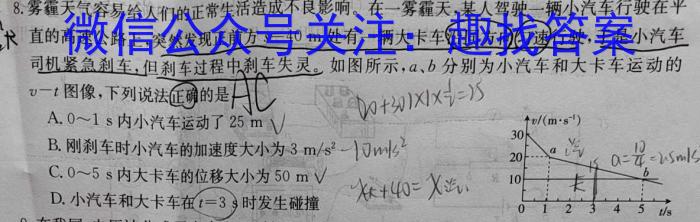 8. 雾霾天气容易给人们的正常生活造成不良影响。在一雾霾天,某人驾驶一辆小汽车行驶在平
直的高速公路上,突然发现正前方 40 m 处有一辆大卡车 速行驶,于是小汽车
微信公众号关注:趣找答案
司机紧急刹车,但刹车过程中刹车失灵。如图所示,a、b 分别为小汽车和大卡车运动的
v-t 图像,下列说法正确的是 AC
A. 0~1 s 内小汽车运动了 25 m √
B. 刚刹车时小汽车的加速度大小为 3 m/s² 10m/s²
C. 0~5 s 内大卡车的位移大小为 50 m √
D. 小汽车和大卡车在 t=3 s 时发生碰撞
(20+30)×1×½=25
+40=X
v/(m·s⁻¹)
30
20
10
a
b
0 1 2 3 4 5 t/s